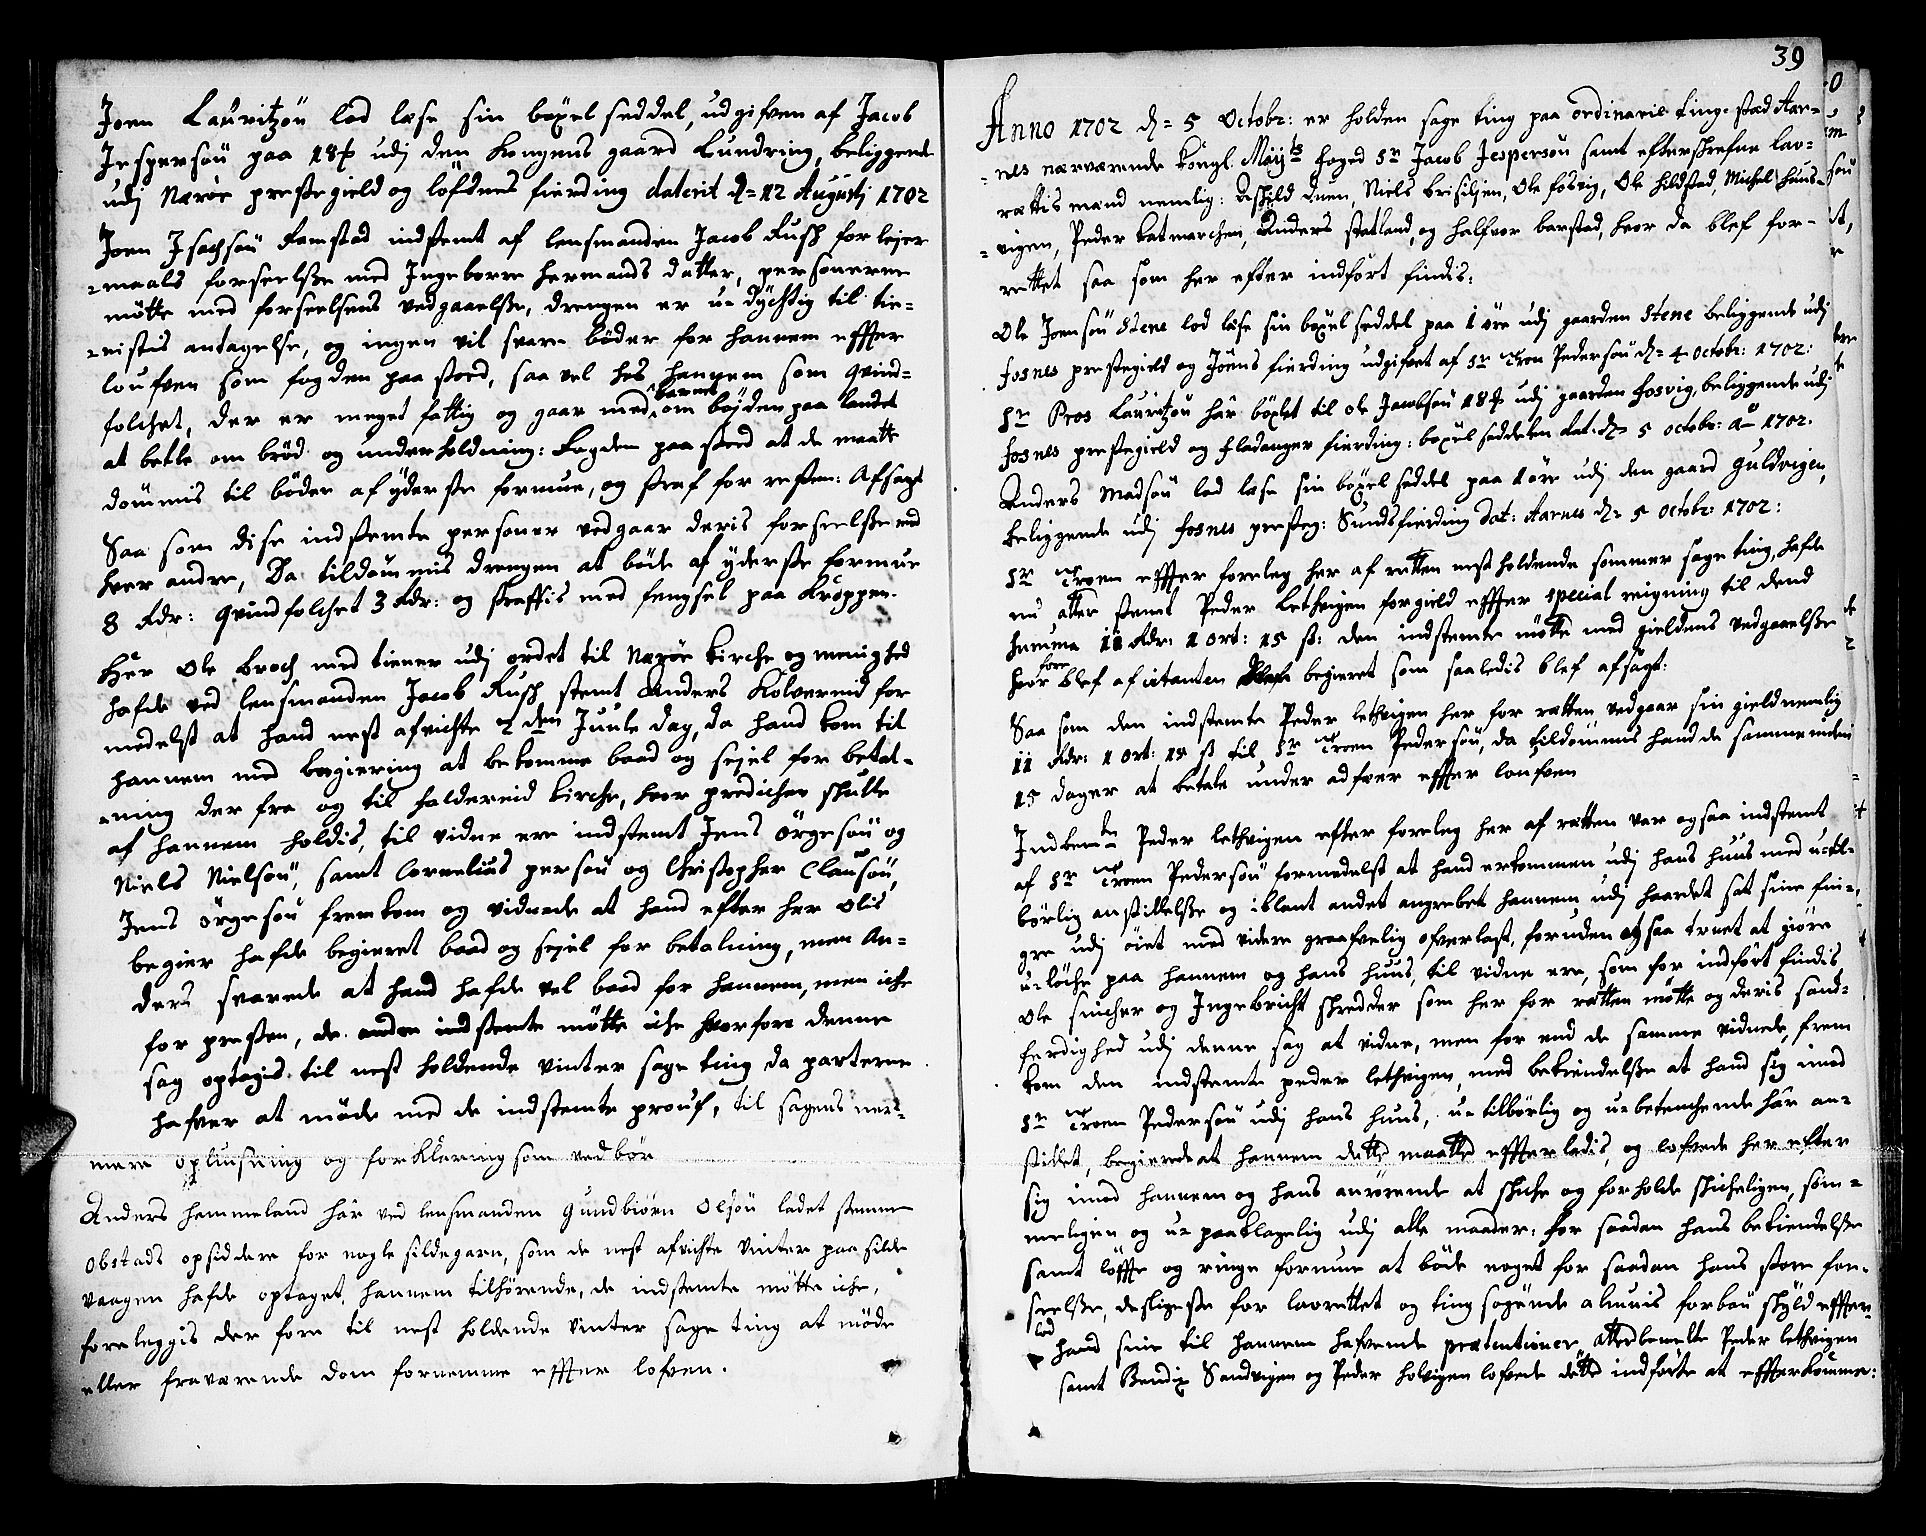 Joen Lauritzøn lod læse sin böxel seddel, udgifven af Jacob
Jespersøn paa 18 udj den Kongens gaard Lundring, beliggende
udj Nærøe prestegield og löfdnes fierding daterit d= 12 Augustj 1702
Joen Isachsøn Ramstad indstemt af lensmanden Jacob Rush for lejer
=maals forseelsse med Ingeborre hermands datter, personerne
mötte med forseelsens vedgaaelsse, drengen er u=dychtig til tie=
=nistis antagelse, og ingen vil svare böder for hannem effter
loufven som fogden paa stod, saa vel hos hannem som qvind=
barnet
folchet, der er meget fattig og gaar med om böjden paa landet
at betle om bröd og underholdning: Fogden paa stod at de maatte
dömmis til böder af yderste formue, og straf for resten: Afsagt
Saa som dise indstemte personer vedgaar deris forseelsse med
hver andre, Da tildömmis drengen atböde af yderste formue
8 Rdr: qvindfolchet 3 Rdr: og straffis med fengsel paa Kroppen.
Her Ole Broch med tiener udj ordet til Nærøe Kirche og menighed
hafde ved lensmanden Jacob Rush stemt Anders Kolvereid for
medelst at hand nest afvichte 2den Juule dag, da hand kom til
hannem med begiering at bekomme baad og sejel for betal=
=ning der fra og til foldereid Kirche, hvor predichen skulle
af hannem holdis, til vidne ere indstemt Jens Örgesøn og
Niels Nielsøn, samt Cornelius persøn og Christopher Clausøn,
Jens Örgesøn fremkom og vidnede at hand efter her Olis
begier hafde begieret baad og sejel for betalning, men An=
ders svarede at hand hafde vel baad for hannem, men iche
for presten, de andre indstemte mötte iche hvorfore denne
sag optagis til nest holdende vinter sage ting da parterne
hafver at möde med de indstemte prouf, til sagens ner=
mere opliusning og forklaring som ved bör
Anders hammeland hår ved lensmanden Gundbiörn Olsøn ladet stemme
Obstads opsiddere for nogle sildegarn, som de nest afvichte vinter paa silde
vaagen hafde optaget, hannem tilhörende, de indstemte mötte iche,
foreleggis der fore til nest holdende vinter sage ting at möde
eller fraværende dom fornemme effter lofven.
39
Anno 1702 d= 5 Octobr: er holden sage ting paa ordinarie ting-stad Aar=
=nes nærværende kongl. Mayts foged Sr Jacob Jespersøn samt efterschrefne lav=
rettis mænd nemlig: Niels Brisiljen, Ole fosvig, Ole hildstad, Michel
=vigen, Peder katmarchen, Anders statland, og halfvor barstad, hvor da blef for=
rettet saa som her efter indfört findis:
Ole Joensøn Stene lod læse sin boxel seddel paa 1 öre udj gaarden Stene beliggende udj
fosnes prestegield og Jöens fierding udgifvet af Sr Troen Pedersøn d= 4 octobr: 1702:
Sr Pros Lauritzøn hår böxlet til Ole Jacobsøn 18 udj gaarden fosvig, beliggende udj
fosnes prestegield og Fladanger fierding: boxel seddelen dat: d= 5 octobr: ao 1702.
Anders Madsøn lod læse sin böxel seddel paa 1 öre udj den gaard Guldvigen,
beliggende udj fosnes presteg: Sundsfierding dat: Aarnes d= 5 octobr 1702:
Sr Troen effter foreleg her af retten nest holdende sommer sage ting, hafde
nu atter stemt Peder Lethvigen for gield effter special reigning til dend
summa 11 Rdr: 1 ort: 15 s: den indstemte mötte med gieldens vedgaaelsse
fore
hvor blef af citanten begieret som saaledis blef afsagt:
Saa som den indstemte Peder lethvigen her for retten vedgaar sin gield nemlig
11 Rdr: 1 ort: 15 s til Sr Troen Pedersøn, da tildömmis hand de samme inden
15 dager at betale under adfær effter loufven
Indbemte Peder lethvigen efter foreleg her af retten var og saa indstemt
af Sr Troen Pedersøn formedelst at hand er kommen udj hans huus med util=
börlig anstillelsse og iblant andet angrebet hannem udj haaret sat sine fin=
gre udj öiet med videre graafvelig ofverlast, foruden og saa truet at giöre
u=löche paa hannem og hans huus, til vidne ere, som for indfört findis
Ole sincher og Ingebricht skredder som her for retten mötte og deris sand=
ferdighed udj denne sag at vidne, men för end de samme vidnede, frem
kom den indstemte peder lethvigen, med bekiendelsse at hand sig imod
Sr Troen Pedersøn udj hans huus, u=tilbörlig og u=betenchende hår an=
stillet, begierede at hannem dette maatte effterladis, og lofvede her efter
sig imod hannem og hans anrörende at skiche og forholde skicheligen, söm=
meligen og u=paaklagelig udj alle maader: for saadan hans bekiendelsse
samt löffte og ringe formue at böde noget for saadan hans store for=
seelsse, desligeste for lavrettet og ting sögende almuis forbön skyld effter=
lod
hand sine til hannem hafvende prætentioner attbemelte Peder lethvigen
samt Bendix Sandvigen og Peder holvigen lofvede dette indförte at effterkomme: